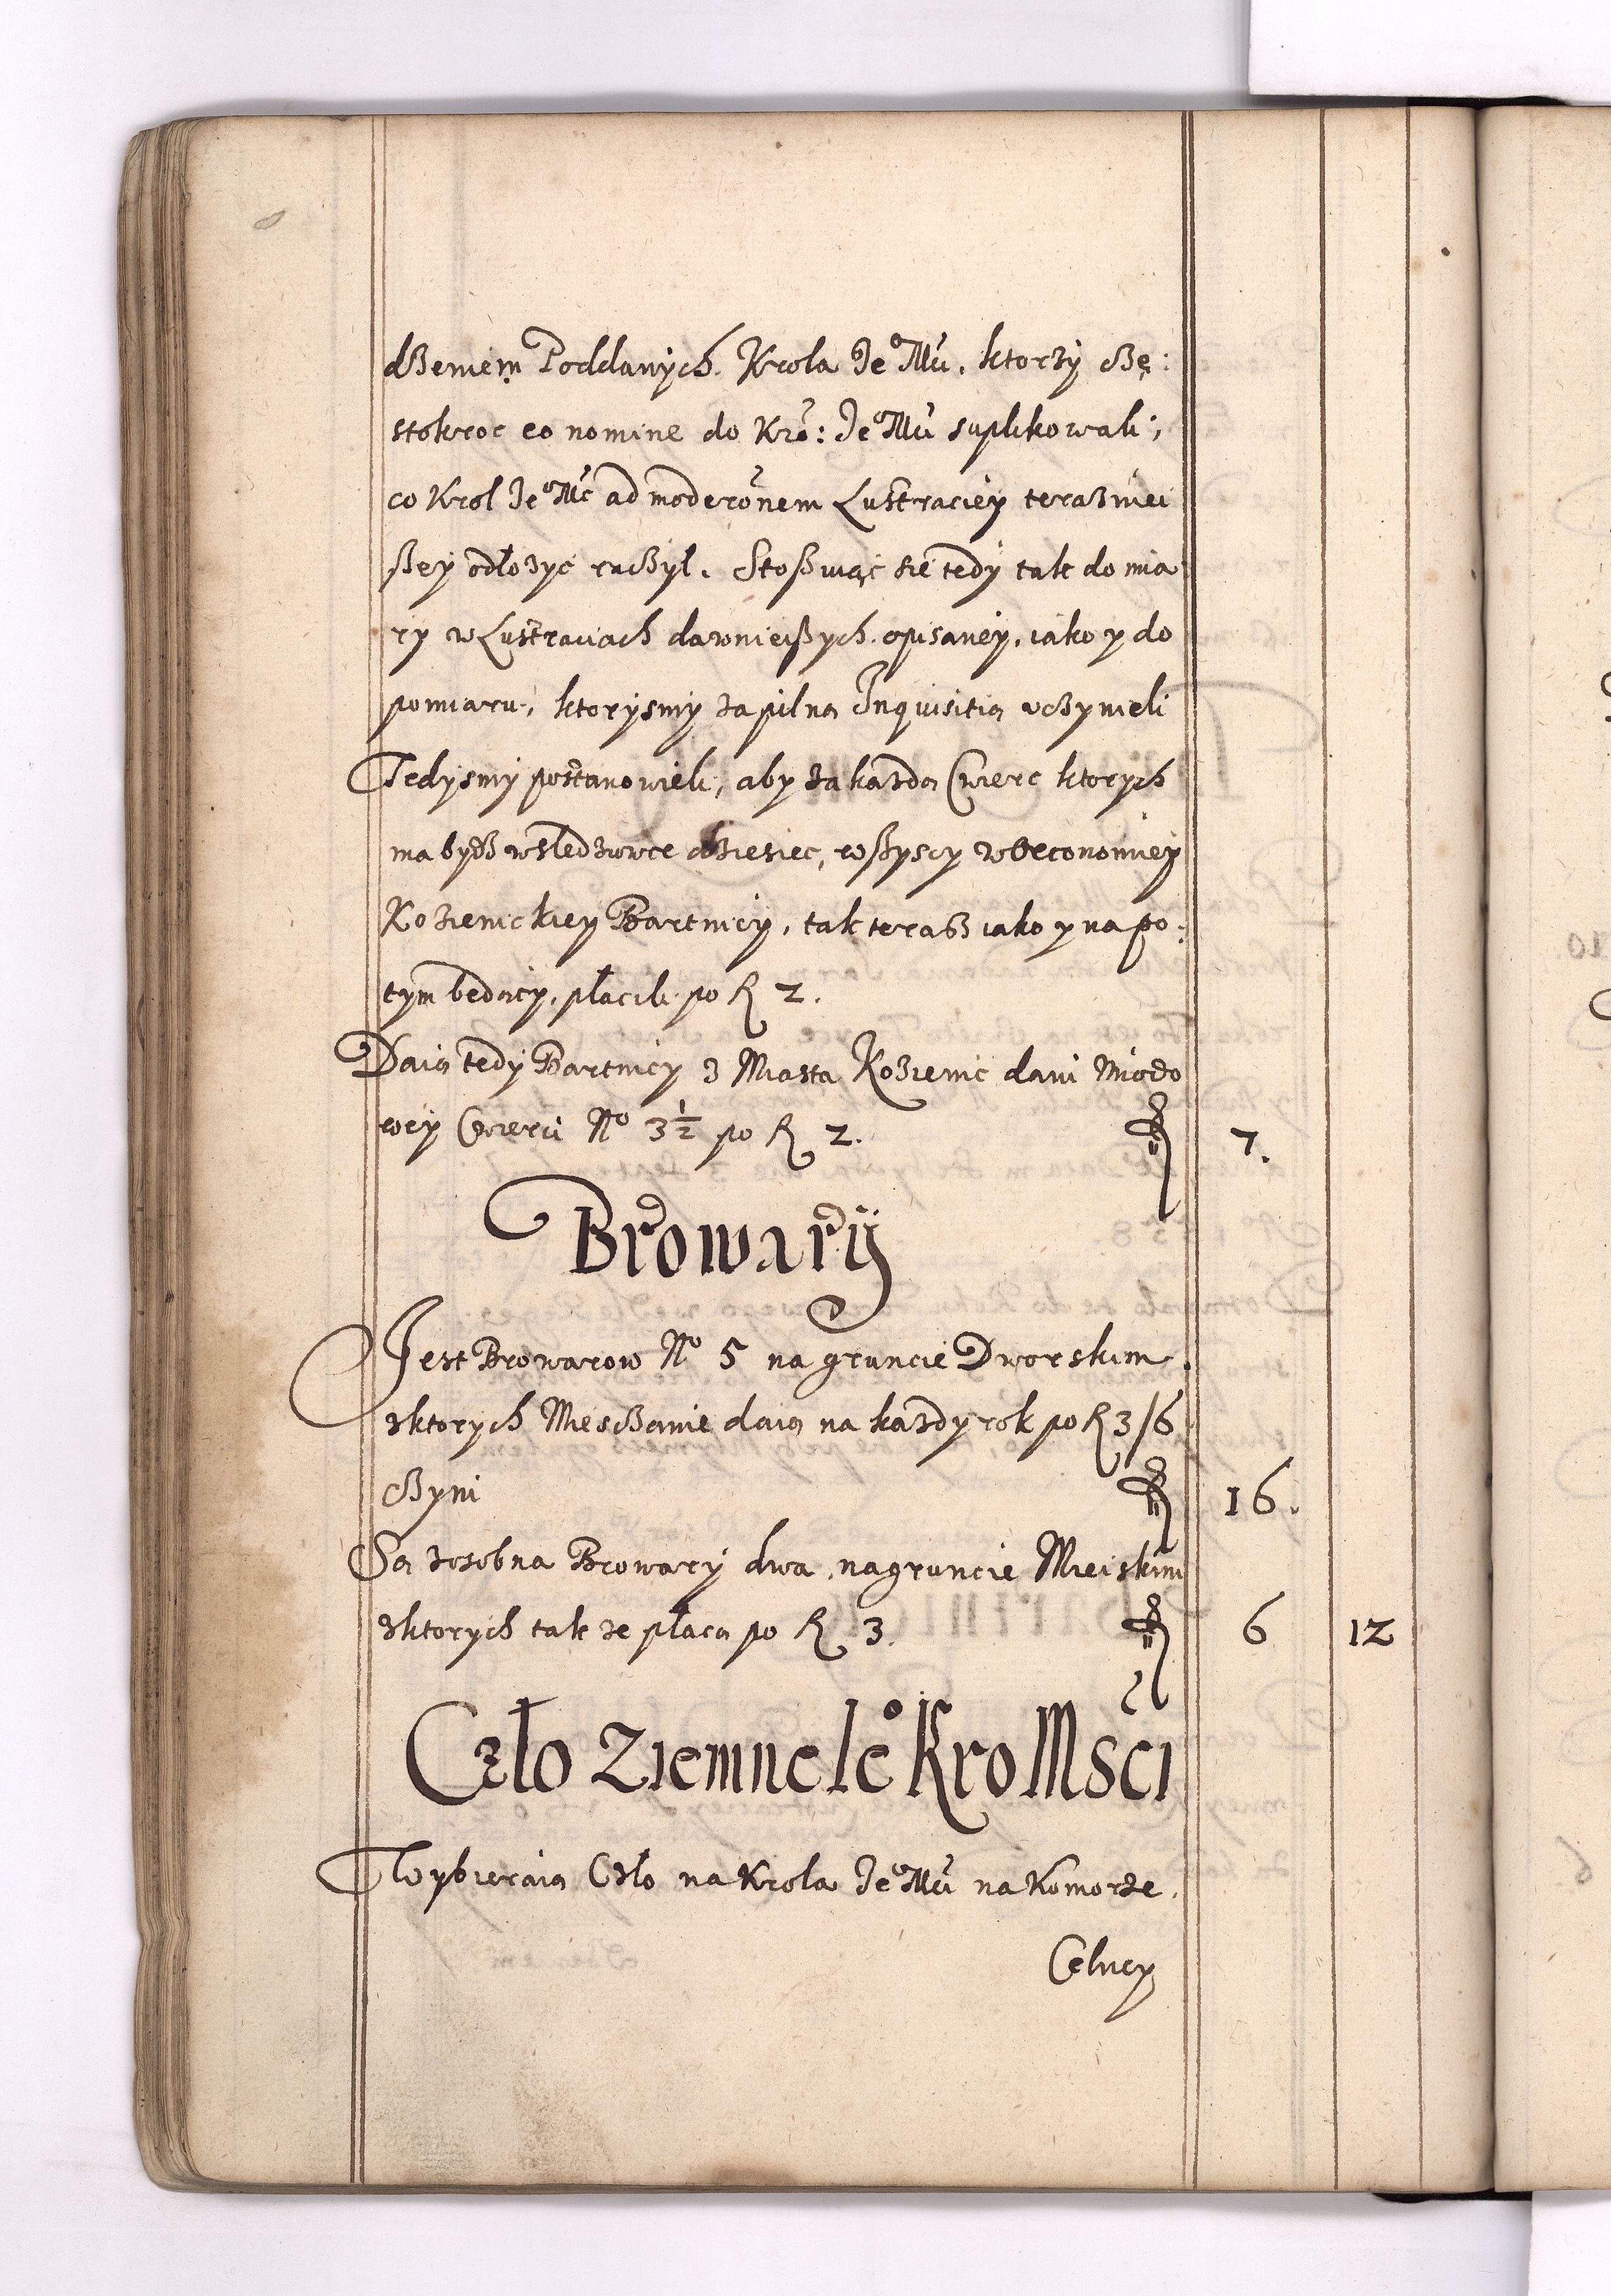 dzeniem Poddanych. Krola Je⁰ Mci, ktorzy czę:
stokroc eo nomine do Kro: Je⁰ Mci suplikowali,
co Krol Je⁰ Mc ad moderonem Lustraciey terazniei
szey odłozyc raczył. Stosuiąc sie tedy tak do mia
ry w Lustraciach dawnieiszych opisaney, iako y do
pomiaru, ktorysmy za pilna Inquisitia vczynieli
Tedysmy postanowieli, aby za kazda Cwierc ktorych
ma bydz w sledziowce dziesiec, wszyscy w Oeconomiey
Kozienickiey Bartnicy, tak teraz iako y na po:
tym bedacy, płacili po R 2.
Daia tedy Bartnicy z Miasta Kozienic dani Miodo
wey Cwierci No 3½ po R 2. 7.
Browary
Jest Browarow No 5 na gruncie Dworskim.
z ktorych Miesczanie daia na kazdy rok po R 3/6
czyni 16.
Sa zosobna Browary dwa, na gruncie Mieiskim
z ktorych tak ze płaca po R 3. 6 12
Czło Ziemne Ie⁰ Kro Msci
Wybieraia Czło na Krola Je⁰ Mci na Komorze
Celney